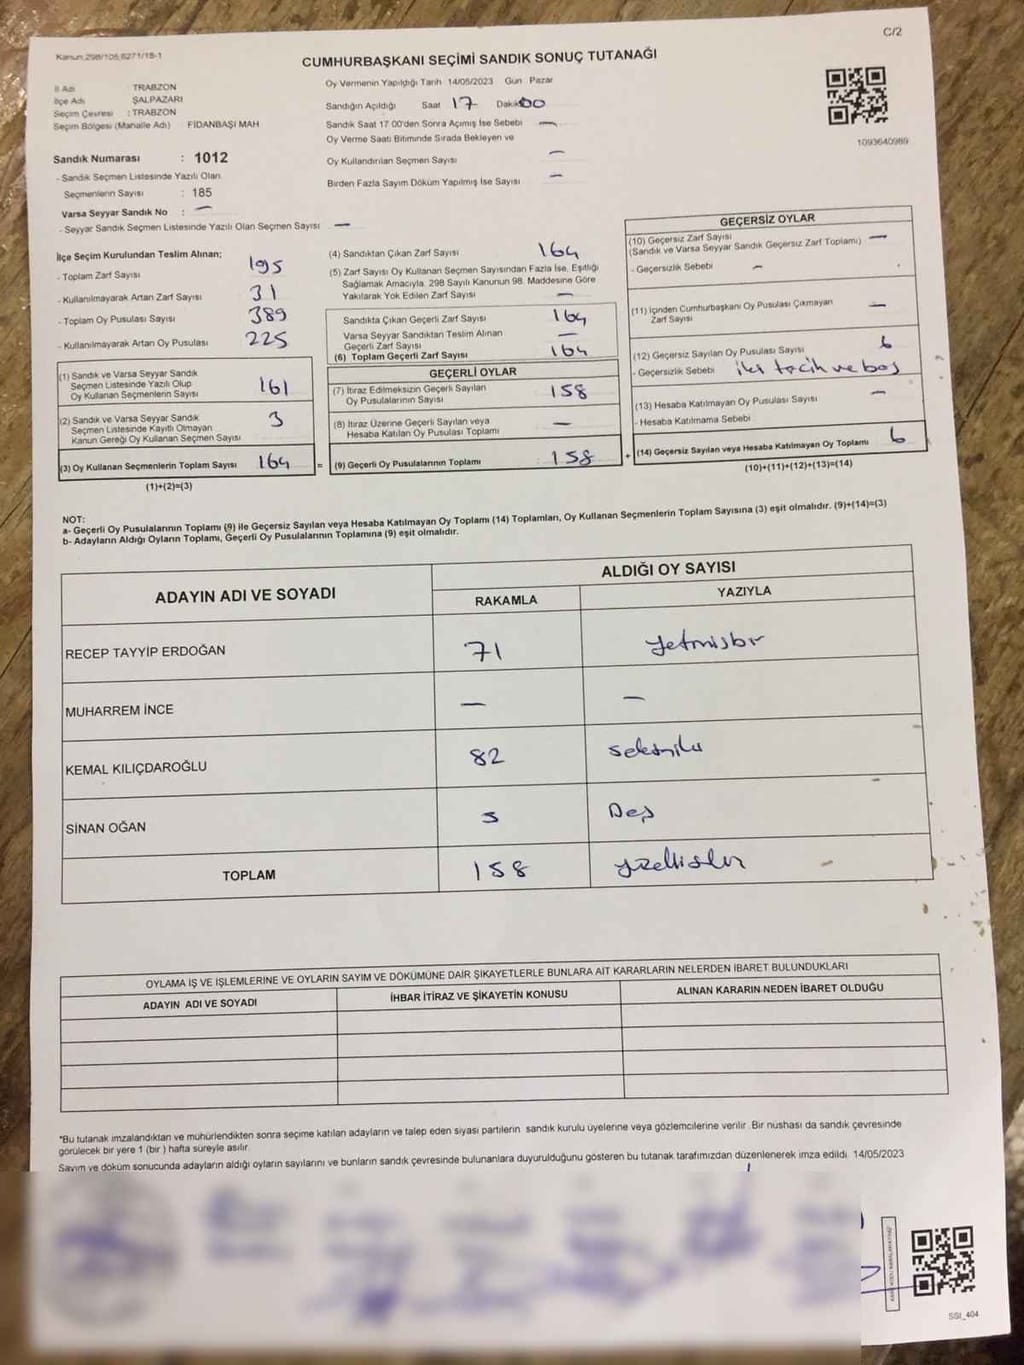 Kanun:298/105,6271/18-1
C/2
CUMHURBAŞKANI SEÇİMİ SANDIK SONUÇ TUTANAĞI
İl Adı TRABZON
İlçe Adı ŞALPAZARI
Seçim Çevresi : TRABZON
Seçim Bölgesi (Mahalle Adı) FİDANBAŞI MAH
Oy Vermenin Yapıldığı Tarih 14/05/2023 Gün Pazar
Sandığın Açıldığı Saat 17 Dakika 00
Sandık Saat 17:00'den Sonra Açımış İse Sebebi —
Oy Verme Saati Bitiminde Sırada Bekleyen ve
Oy Kullandırılan Seçmen Sayısı —
Birden Fazla Sayım Döküm Yapılmış İse Sayısı —
1093640989
Sandık Numarası : 1012
- Sandık Seçmen Listesinde Yazılı Olan
Seçmenlerin Sayısı : 185
Varsa Seyyar Sandık No : —
- Seyyar Sandık Seçmen Listesinde Yazılı Olan Seçmen Sayısı —
İlçe Seçim Kurulundan Teslim Alınan;
- Toplam Zarf Sayısı 195
- Kullanılmayarak Artan Zarf Sayısı 31
- Toplam Oy Pusulası Sayısı 389
- Kullanılmayarak Artan Oy Pusulası 225
(1) Sandık ve Varsa Seyyar Sandık
Seçmen Listesinde Yazılı Olup
Oy Kullanan Seçmenlerin Sayısı 161
(2) Sandık ve Varsa Seyyar Sandık
Seçmen Listesinde Kayıtlı Olmayan
Kanun Gereği Oy Kullanan Seçmen Sayısı 3
(3) Oy Kullanan Seçmenlerin Toplam Sayısı 164 =
(1)+(2)=(3)
(4) Sandıktan Çıkan Zarf Sayısı 164
(5) Zarf Sayısı Oy Kullanan Seçmen Sayısından Fazla İse, Eşitliği
Sağlamak Amacıyla, 298 Sayılı Kanunun 98. Maddesine Göre
Yakılarak Yok Edilen Zarf Sayısı —
Sandıkta Çıkan Geçerli Zarf Sayısı 164
Varsa Seyyar Sandıktan Teslim Alınan
Geçerli Zarf Sayısı —
(6) Toplam Geçerli Zarf Sayısı 164
GEÇERLİ OYLAR
(7) İtiraz Edilmeksizin Geçerli Sayılan
Oy Pusulalarının Sayısı 158
(8) İtiraz Üzerine Geçerli Sayılan veya
Hesaba Katılan Oy Pusulası Toplamı —
(9) Geçerli Oy Pusulalarının Toplamı : 158 +
GEÇERSİZ OYLAR
(10) Geçersiz Zarf Sayısı —
(Sandık ve Varsa Seyyar Sandık Geçersiz Zarf Toplamı)
- Geçersizlik Sebebi —
(11) İçinden Cumhurbaşkanı Oy Pusulası Çıkmayan
Zarf Sayısı —
(12) Geçersiz Sayılan Oy Pusulası Sayısı 6
- Geçersizlik Sebebi iki tercih ve boş
(13) Hesaba Katılmayan Oy Pusulası Sayısı —
- Hesaba Katılmama Sebebi
(14) Geçersiz Sayılan veya Hesaba Katılmayan Oy Toplamı 6
(10)+(11)+(12)+(13)=(14)
NOT:
a- Geçerli Oy Pusulalarının Toplamı (9) ile Geçersiz Sayılan veya Hesaba Katılmayan Oy Toplamı (14) Toplamları, Oy Kullanan Seçmenlerin Toplam Sayısına (3) eşit olmalıdır. (9)+(14)=(3)
b- Adayların Aldığı Oyların Toplamı, Geçerli Oy Pusulalarının Toplamına (9) eşit olmalıdır.
ADAYIN ADI VE SOYADI
ALDIĞI OY SAYISI
RAKAMLA YAZIYLA
RECEP TAYYİP ERDOĞAN 71 Yetmişbir
MUHARREM İNCE — —
KEMAL KILIÇDAROĞLU 82 Seksniki
SİNAN OĞAN 5 Beş
TOPLAM 158 yüzellisekiz
OYLAMA İŞ VE İŞLEMLERİNE VE OYLARIN SAYIM VE DÖKÜMÜNE DAİR ŞİKAYETLERLE BUNLARA AİT KARARLARIN NELERDEN İBARET BULUNDUKLARI
ADAYIN ADI VE SOYADI İHBAR İTİRAZ VE ŞİKAYETİN KONUSU ALINAN KARARIN NEDEN İBARET OLDUĞU
*Bu tutanak imzalandıktan ve mühürlendikten sonra seçime katılan adayların ve talep eden siyasi partilerin sandık kurulu üyelerine veya gözlemcilerine verilir. Bir nüshası da sandık çevresinde
görülecek bir yere 1 (bir) hafta süreyle asılır.
Sayım ve döküm sonucunda adayların aldığı oyların sayılarını ve bunların sandık çevresinde bulunanlara duyurulduğunu gösteren bu tutanak tarafımızdan düzenlenerek imza edildi. 14/05/2023
SSI_404